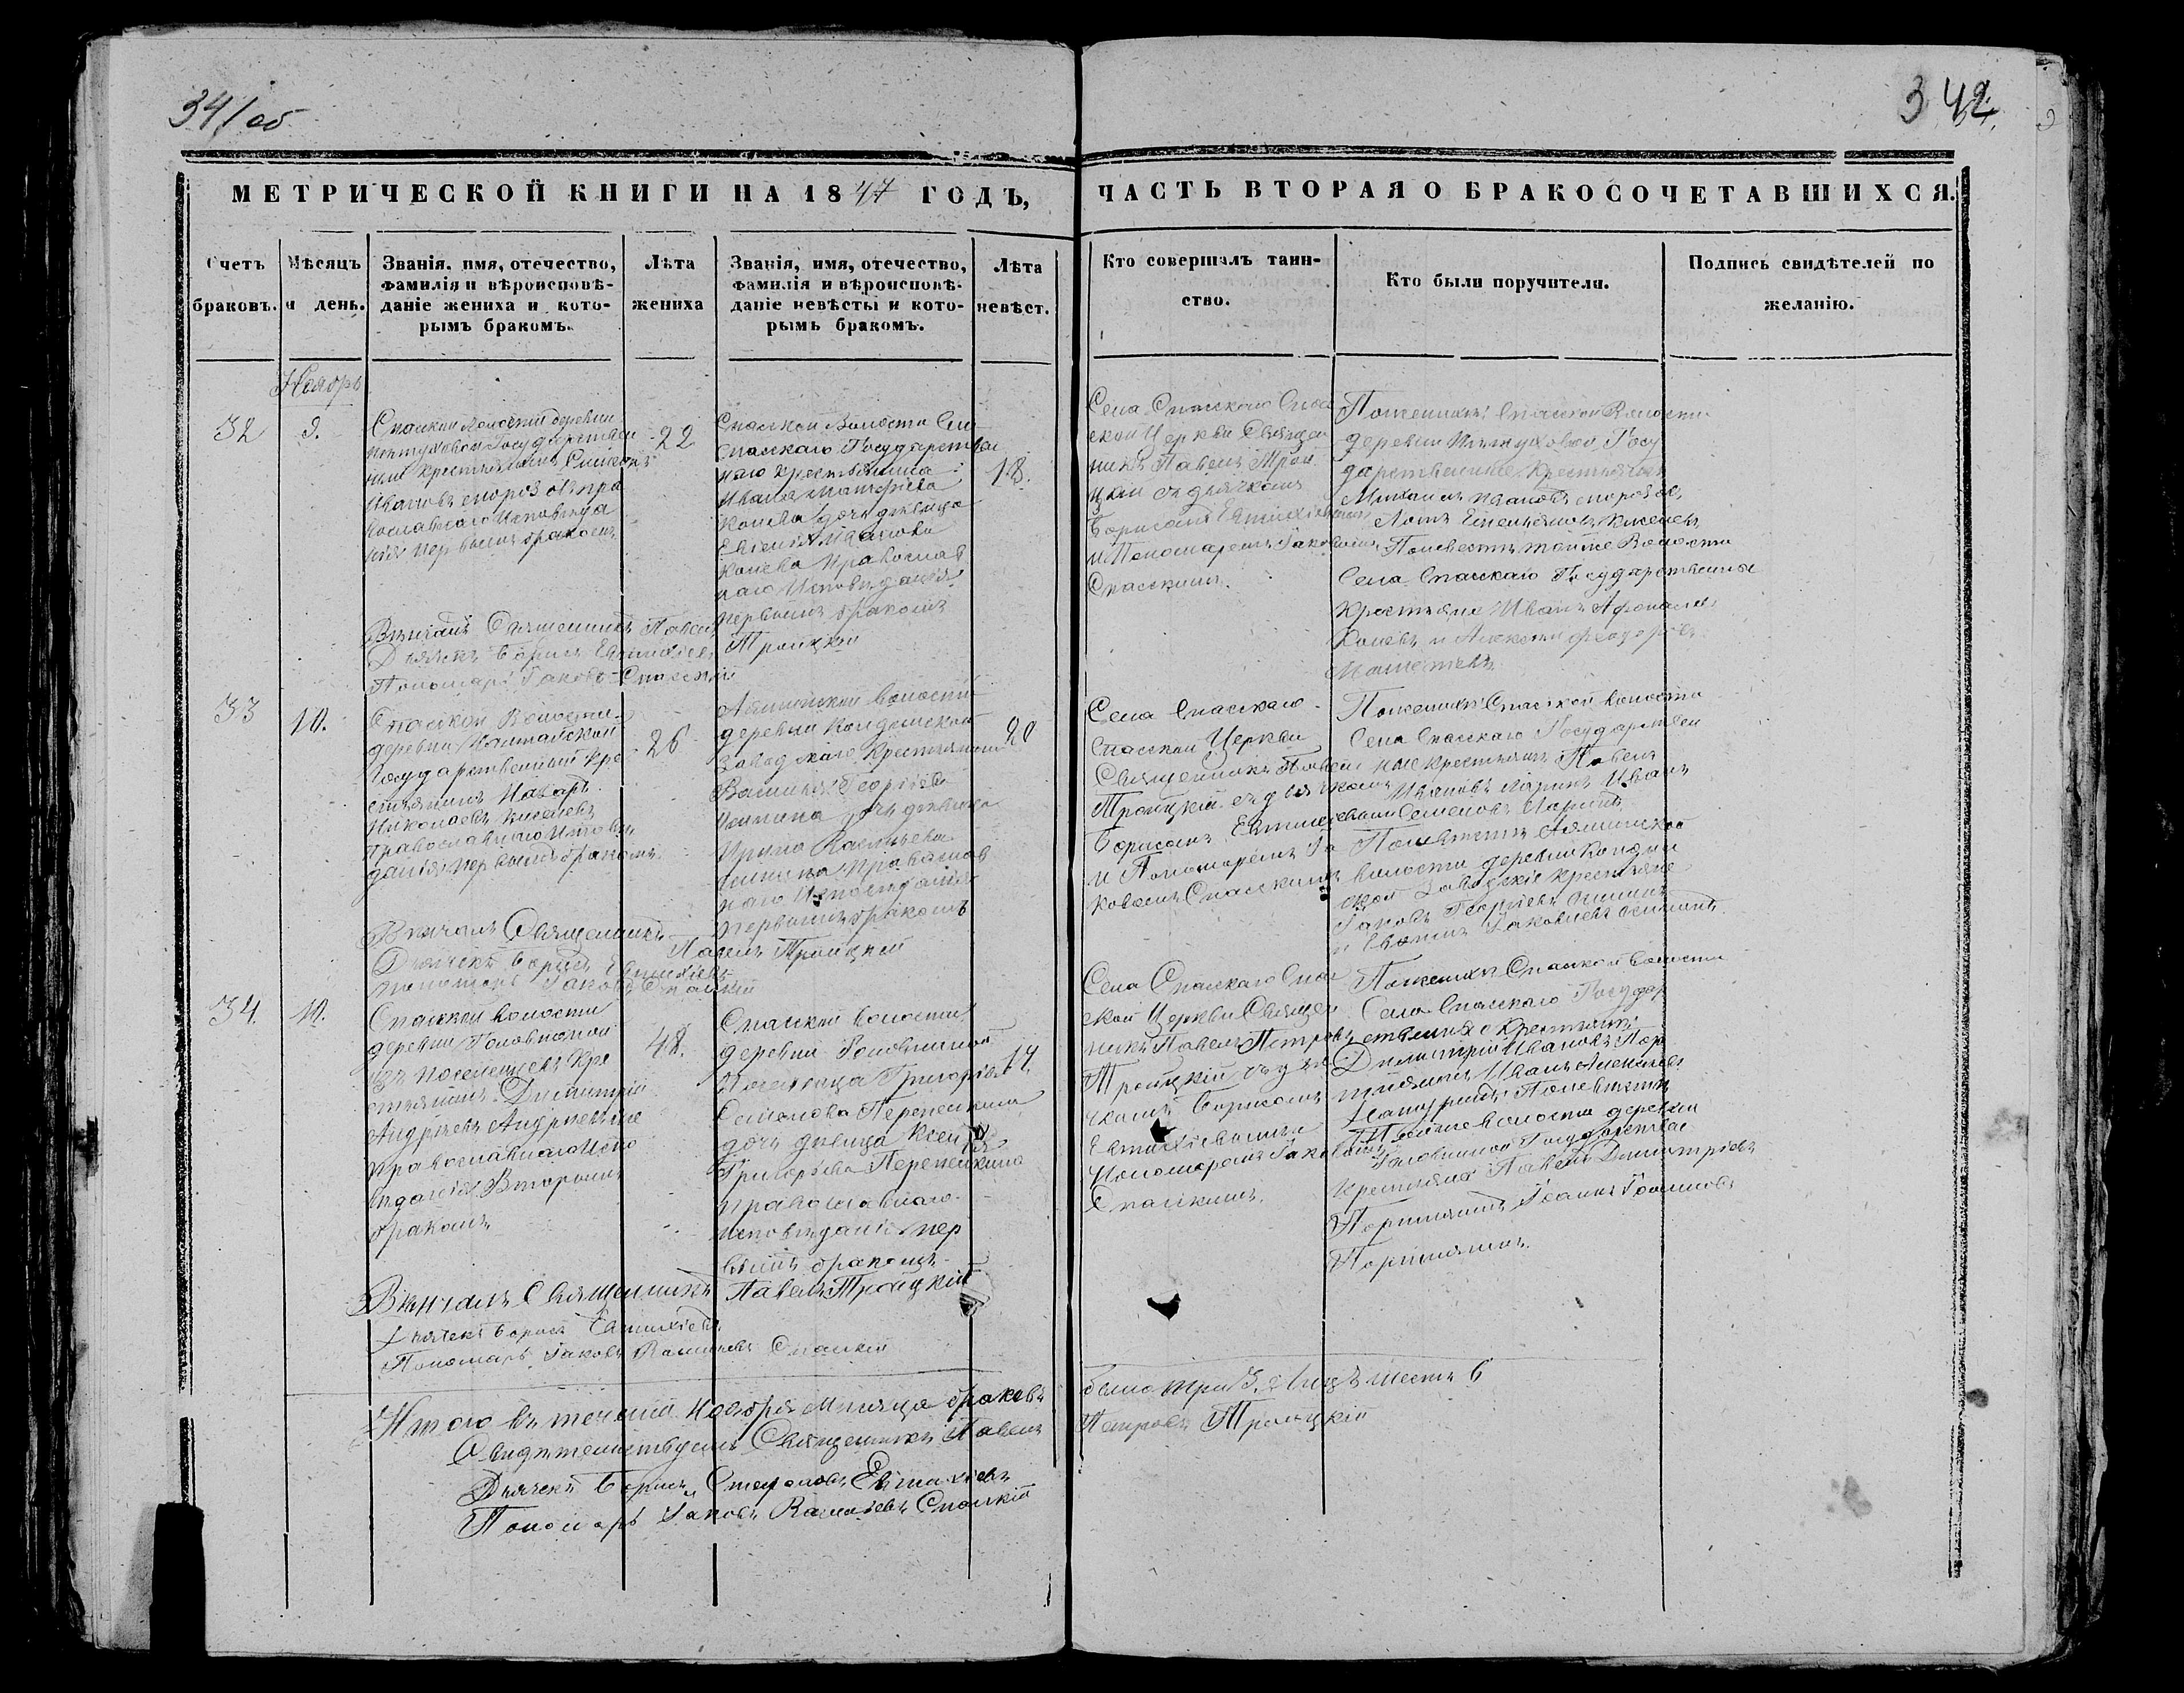 341 об
342
МЕТРИЧЕСКОЙ КНИГИ НА 1847 ГОДЪ,
ЧАСТЬ ВТОРАЯ О БРАКОСОЧЕТАВШИХСЯ.
Счетъ браковъ.
Мѣсяцъ и день.
Званія, имя, отечество,
фамилія и вѣроисповѣ-
даніе жениха и кото-
рымъ бракомъ.
Лѣта
жениха
Званія, имя, отечество,
фамилія и вѣроисповѣ-
даніе невѣсты и кото-
рымъ бракомъ.
Лѣта
невѣст.
Кто совершалъ таин-
ство.
Кто были поручители.
Подпись свидѣтелей по
желанію.
Ноябрь
32
9.
Спаской волости деревни
Государствен
ный крестьянинъ
Ивановъ пра
вославнаго исповѣда
нія первымъ бракомъ
22
Спаской Волости Села
Спаскаго Государствен
наго крестьянина
Ивана
Конева дочь дѣвица
Евгенія Иванова
Конева Православ
наго Исповѣданія
первымъ бракомъ
18.
Села Спасскаго Спас
ской Церкви Священ
никъ Павелъ Троиц
кій съ дьячкомъ
Борисомъ Евтихіевымъ
и Пономаремъ Іаковомъ
Спасскимъ.
По женихѣ: Спасской Волости
деревни Госу
дарственные крестьяне
Михаилъ Ивановъ
Киселевъ
По невѣстѣ тойже Волости
Села Спасскаго Государственные
крестьяне Иванъ
Коневъ и Алексѣй Федоровъ
Вѣнчалъ Священникъ Павелъ Троицкій
Дьячекъ Борисъ Евтихіевъ
Пономарь Іаковъ Спасскій
33
10.
Спаской Волости
деревни
Государственный кре
стьянинъ Назаръ
Николаевъ Киселевъ
православнаго исповѣ
данія первымъ бракомъ
26
волости
деревни
Заводскаго крестьянина
Василія Георгіева
дочь дѣвица
Ирина Васильева
Православ
наго Исповѣданія
первымъ бракомъ
20
Села Спасскаго
Спасской Церкви
Священникъ Павелъ
Троицкій съ дьячкомъ
Борисомъ Евтихіевымъ
и Пономаремъ Іа
ковомъ Спасскимъ
По женихѣ Спаской волости
Села Спасскаго Государствен
ные крестьяне Павелъ
Ивановъ Ларинъ Иванъ
Семеновъ Ларинъ
По невѣстѣ
волости деревни
Заводскіе крестьяне
Іаковъ Георгіевъ
и Іаковлевъ
Вѣнчалъ Священникъ
Павелъ Троицкій
Дьячекъ Борисъ Евтихіевъ
Пономарь Іаковъ Спаскій
34.
10.
Спаской волости
деревни Головиной
изъ поселенцевъ кре
стьянинъ Димитрій
Андреевъ
православнаго испо
вѣданія Вторымъ
бракомъ
48.
Спаской волости
деревни Головиной
Поселенца Григорія
Семенова Перепелкина
дочь дѣвица Ксенія
Григорьева Перепелкина
православнаго
исповѣданія пер
вымъ бракомъ
19
Села Спаскаго Спас
ской Церкви Священ
никъ Павелъ Петровъ
Троицкій съ дья
чкомъ Борисомъ
Евтихіевымъ и
Пономаремъ Іаковомъ
Спаскимъ.
По женихѣ Спаской волости
Села Спаскаго Государ
ственные крестьяне
Димитрій Ивановъ Пор
тнягинъ Иванъ Алексѣевъ
По невѣстѣ
Тойже волости деревни
Головиной Государственные
крестьяне Павелъ Димитріевъ
Портнягинъ
Портнягинъ.
Вѣнчалъ Священникъ Павелъ Троицкій
Дьячекъ Борисъ Евтихіевъ
Пономарь Іаковъ Васильевъ Спаскій
Итого въ теченіи Ноября Мѣсяца браковъ было три 3. а лицъ шесть 6
Свидѣтельствуемъ Священникъ Павелъ Петровъ Троицкій
Дьячекъ Борисъ Стефановъ Евтихіевъ
Пономарь Іаковъ Васильевъ Спаскій